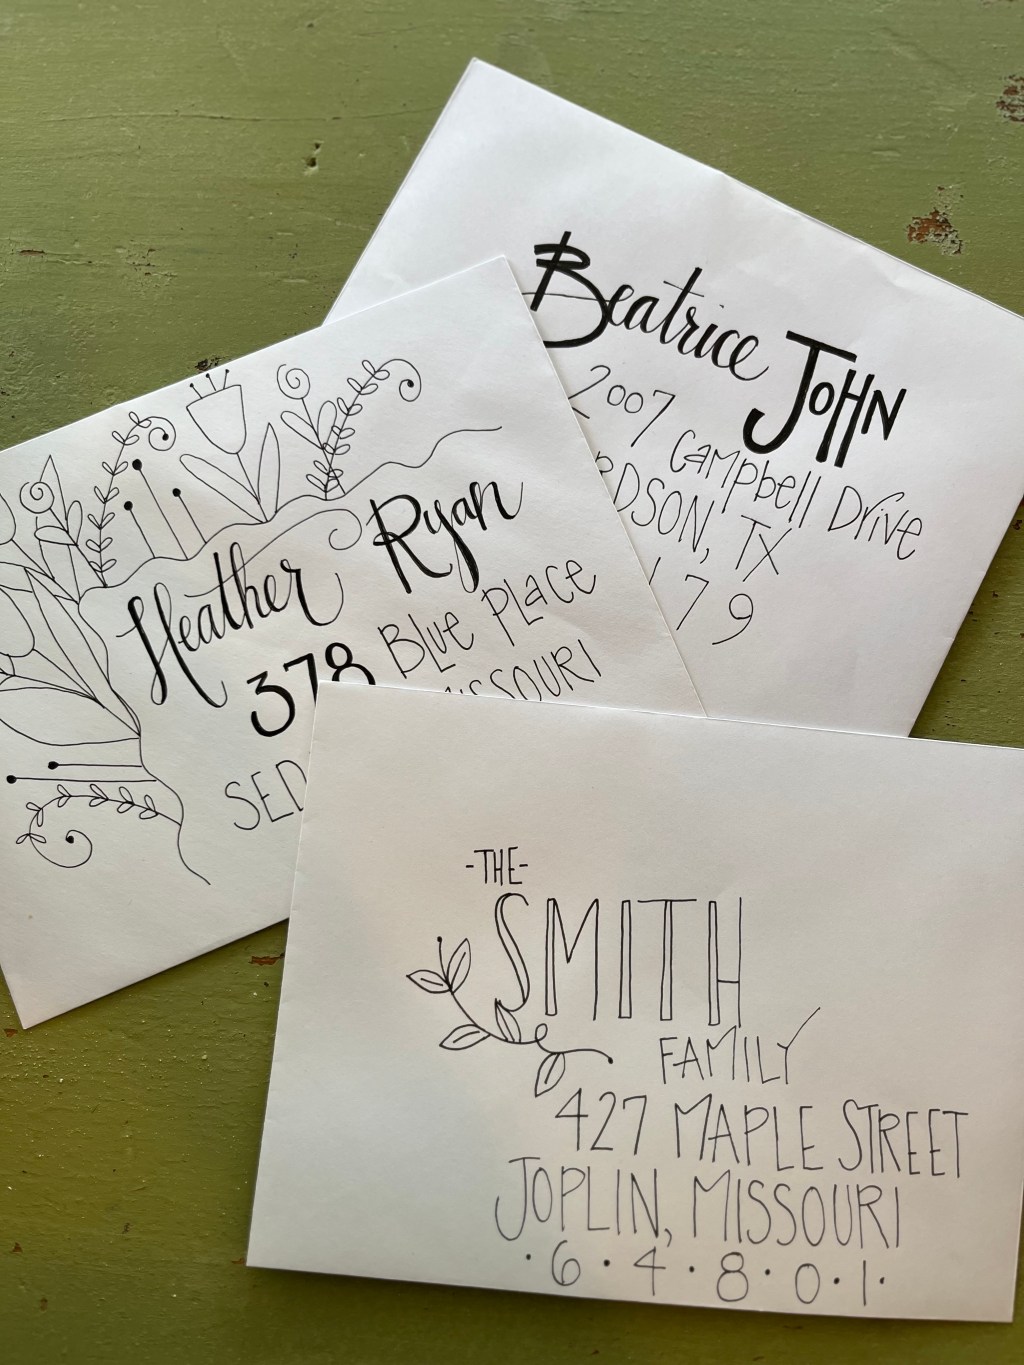 Beatrice JOHN
2007 Campbell Drive
DSON, TX
79
Heather Ryan
378 Blue Place
ISSOURI
SED
-THE-
SMITH
FAMILY
427 MAPLE STREET
JOPLIN, MISSOURI
·6·4·8·0·1·